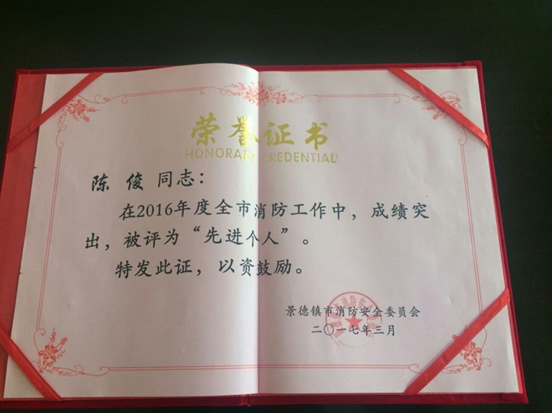 荣誉证书
HONORARY CREDENTIAL
陈 俊 同志：
在2016年度全市消防工作中，成绩突
出，被评为“先进个人”。
特发此证，以资鼓励。
景德镇市消防安全委员会
二〇一七年三月